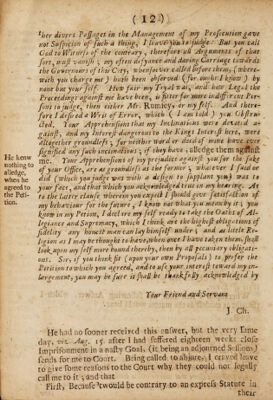 ( 12 )
ther divers Passages in the Management of my Prosecution gave
not Suspicion of such a thing, I leave you to judge. But you call
God to Witness of the contrary, therefore all Arguments of that
sort, must vanish; my often defyance and daring Carriage towards
the Governours of this City, whensoever called before them, (where-
with you charge me) hath been observed (for ought I know) by
none but your self. How fair my Tryal was, and how Legal the
Proceedings against me have been, is fitter for more indifferent Per-
sons to judge, then either Mr. Romsey or my self. And there-
fore I desired a Writ of Error, which I am told you Obstru-
cted. Your Apprehensions that my Inclinations were devoted a-
gainst, and my Interest dangerous to the Kings Interest here, were
altogether groundless; for neither word or deed of mine have ever
signified any such inclinations; if they have, alledge them against
me. Your Apprehensions of my prejudice against you for the sake
of your Office, are as groundless as the former;
did (which you judge was with a design to supplant you) was to
your face, and that which you acknowledged true in my hearing. As
to the latter clause wherein you expect I should give satisfaction of
my behaviour for the future, I know not what you mean by it; you
know in my Petition, I declare my self ready to take the Oaths of Al-
legiance and Supremacy, which I think are the highest obligations of
fidelity any honest man can lay himself under; and as little Re-
ligion as I may be thought to have, when once I have taken them, shall
look upon my self more bound thereby, then by all pecuniary obligati-
ons. Sir, if you think fit (upon your own Proposals) to prefer the
Petition to which you agreed, and to use your interest toward my in-
largement, you may be sure it shall be thankfully acknowledged by
He knew
nothing to
alledge,
when he
agreed to
the Peti-
tion.
Your Friend and Servant
J. Ch.
He had no sooner received this answer, but the very same
day, viz. Aug. 15. after I had suffered eighteen weeks close
Imprisonment in a nasty Goal, (it being an adjourned Sessions)
sends for me to Court. Being called to abjure, I craved leave
to give some reasons to the Court why they could not legally
call me to it; and that
First, Because 'twould be contrary to an express Statute in
their